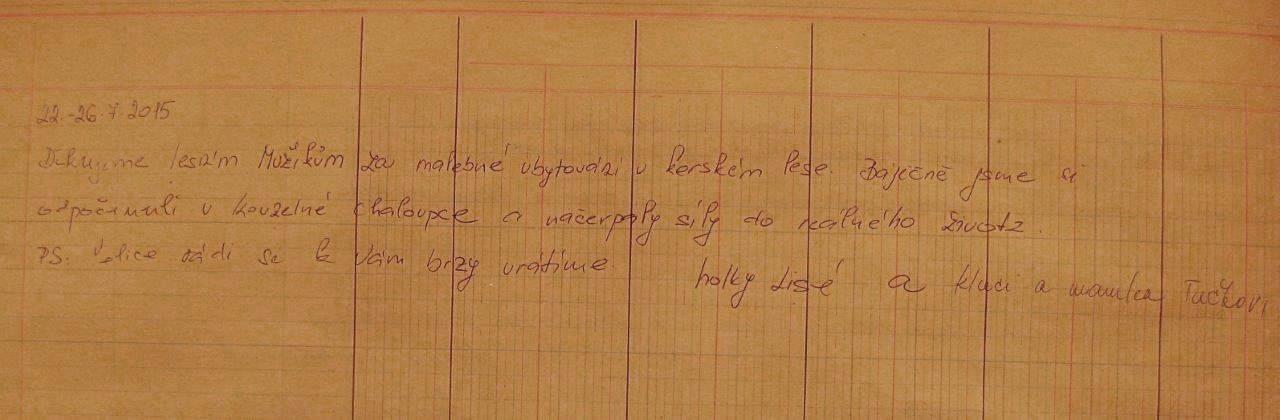 22.-26.7.2015
Děkujeme lesním Mužíkům za malebné ubytování v kerském lese. Báječně jsme si
odpočinuli v kouzelné chaloupce a načerpaly síly do reálného života.
PS. Velice rádi se k Vám brzy vrátíme. holky Lisé a kluci a mamka Tučkovi